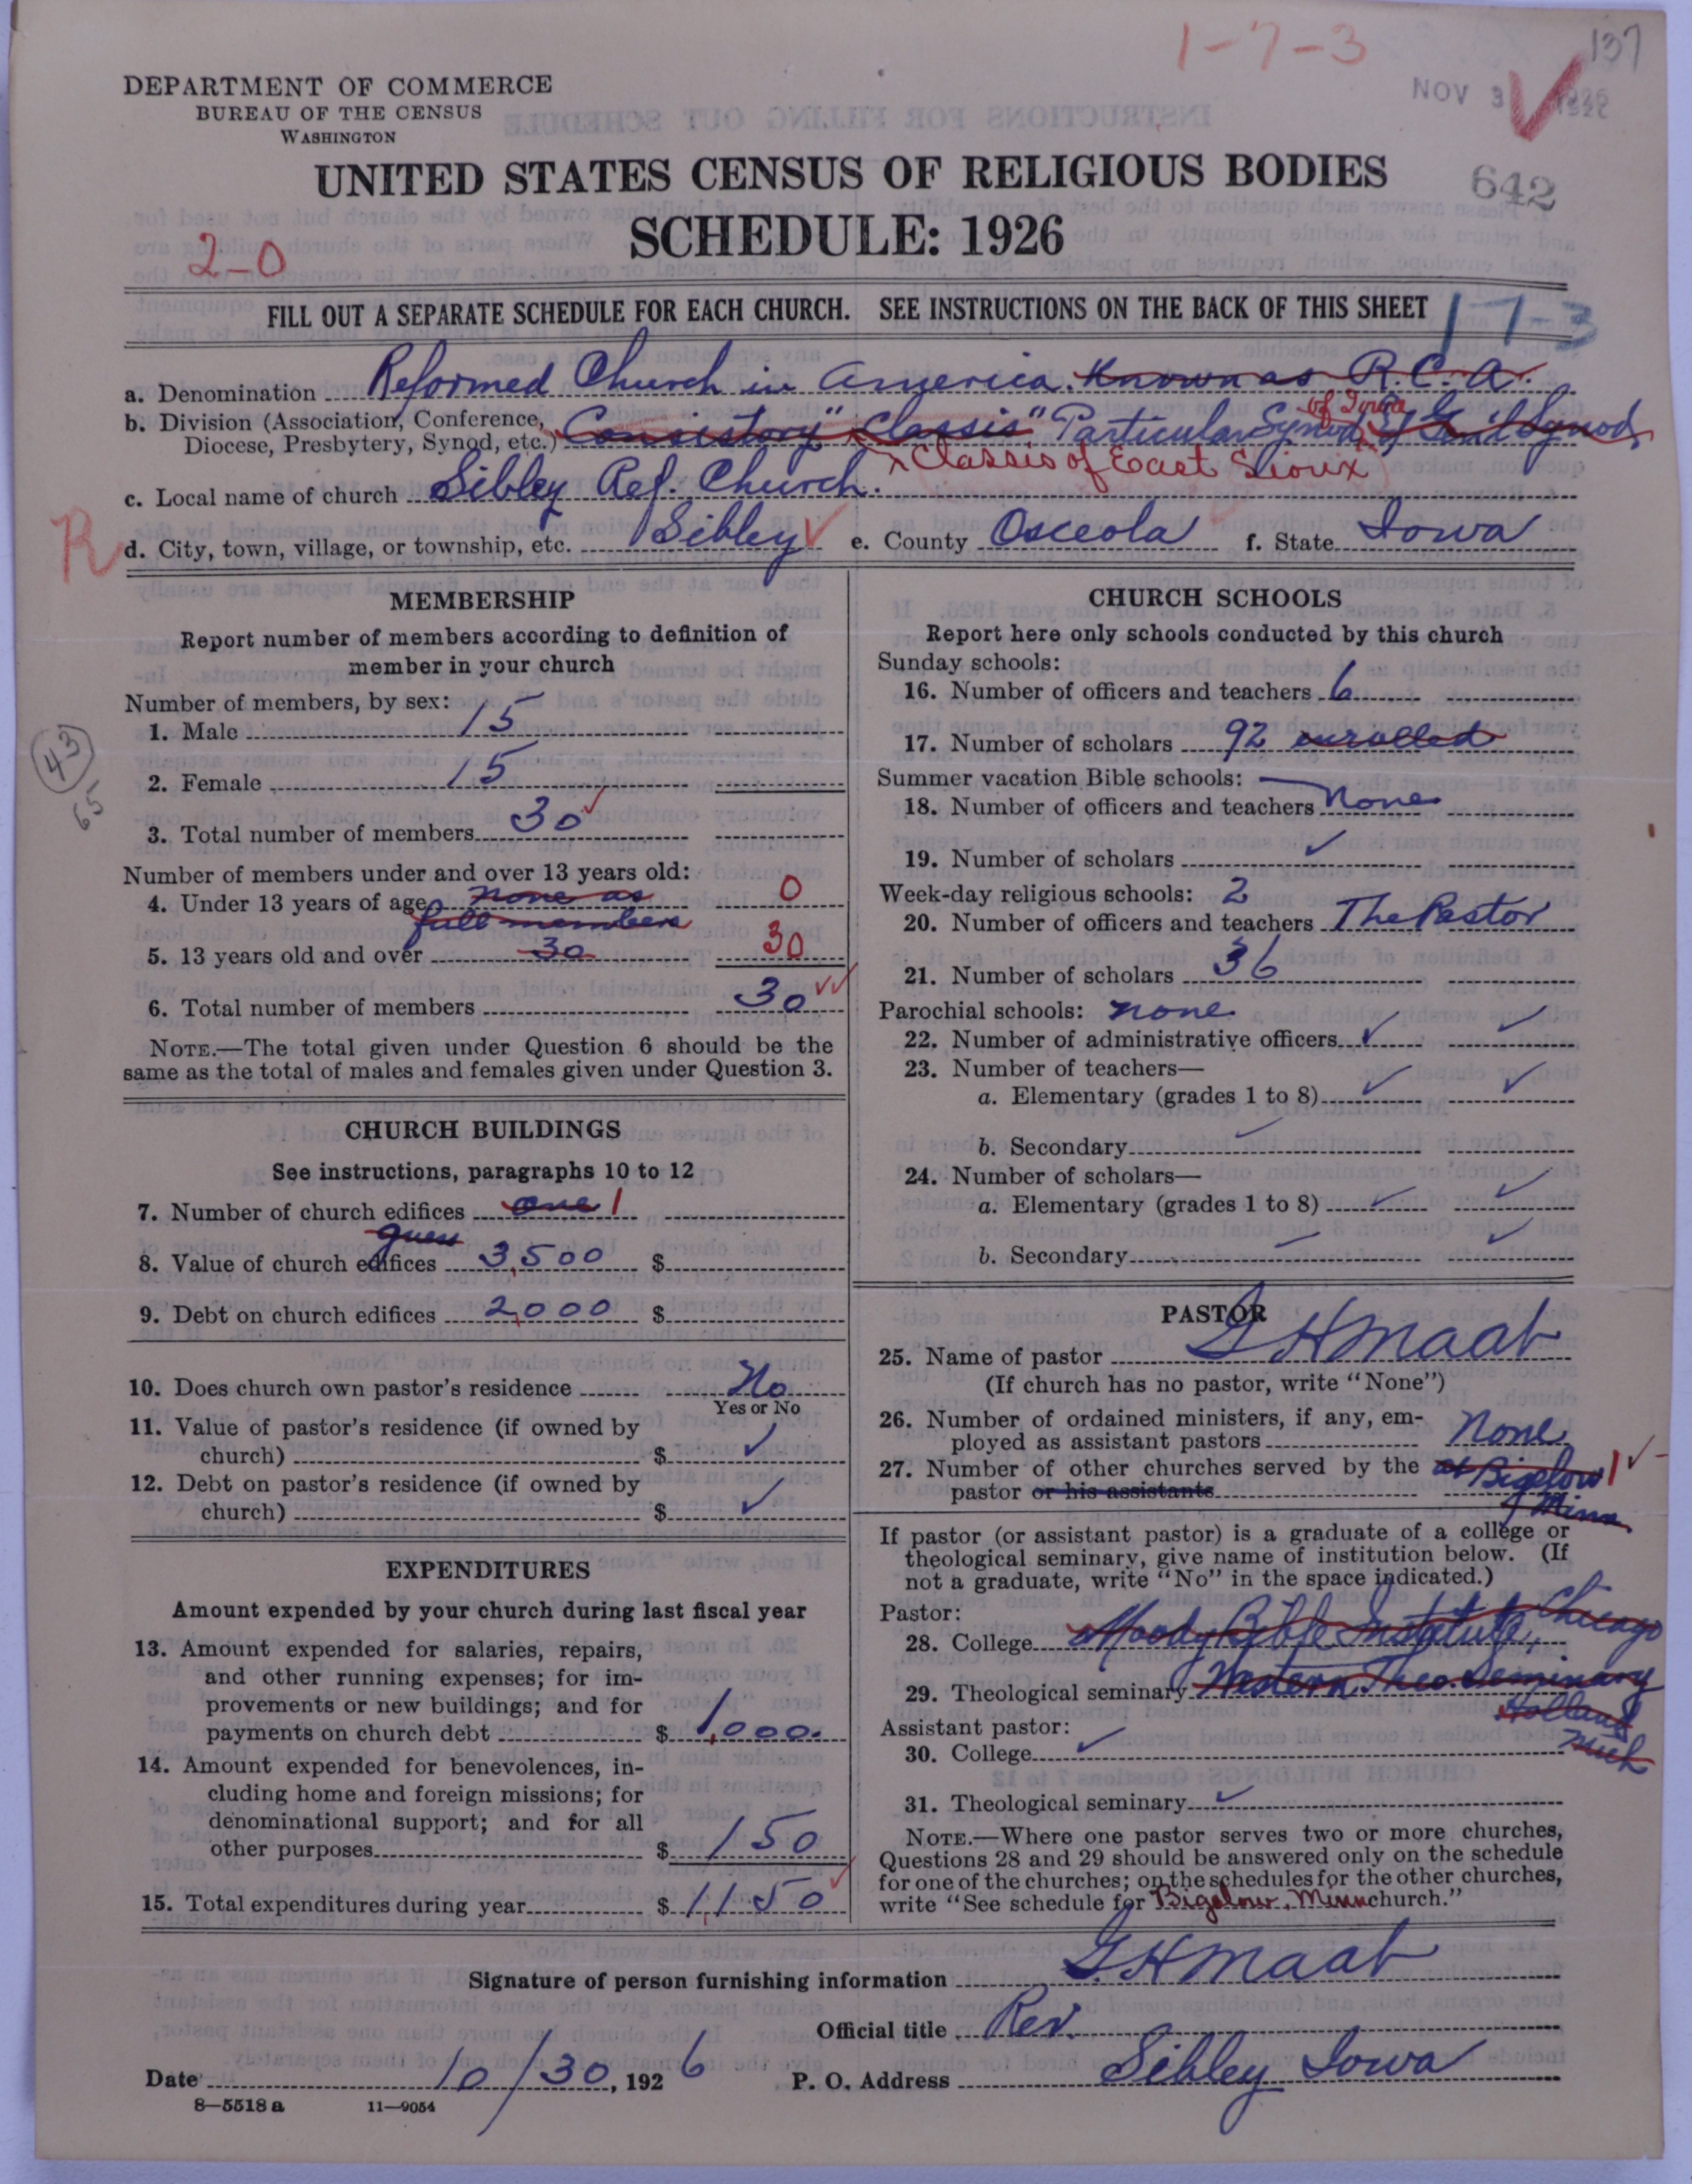 1-7-3
137
DEPARTMENT OF COMMERCE
BUREAU OF THE CENSUS
WASHINGTON
NOV 3
UNITED STATES CENSUS OF RELIGIOUS BODIES
642
SCHEDULE: 1926
2-0
FILL OUT A SEPARATE SCHEDULE FOR EACH CHURCH. SEE INSTRUCTIONS ON THE BACK OF THIS SHEET
1-7-3
a. Denomination Reformed Church in America. Known as R.C.A.
b. Division (Association, Conference, Diocese, Presbytery, Synod, etc.) Consistory" "Classis" Particular Synod of Iowa
Classis of East Sioux
c. Local name of church Sibley Ref. Church.
R
d. City, town, village, or township, etc. Sibley e. County Osceola f. State Iowa
MEMBERSHIP
Report number of members according to definition of
member in your church
Number of members, by sex:
1. Male 15
43
2. Female 15
65
3. Total number of members 30
Number of members under and over 13 years old:
4. Under 13 years of age none as 0
full members
5. 13 years old and over 30 30
6. Total number of members 30
NOTE.—The total given under Question 6 should be the
same as the total of males and females given under Question 3.
CHURCH BUILDINGS
See instructions, paragraphs 10 to 12
7. Number of church edifices one 1
guess
8. Value of church edifices 3,500 $
9. Debt on church edifices 2,000 $
10. Does church own pastor's residence No
Yes or No
11. Value of pastor's residence (if owned by
church) $
12. Debt on pastor's residence (if owned by
church) $
EXPENDITURES
Amount expended by your church during last fiscal year
13. Amount expended for salaries, repairs,
and other running expenses; for im-
provements or new buildings; and for
payments on church debt $ 1,000.
14. Amount expended for benevolences, in-
cluding home and foreign missions; for
denominational support; and for all
other purposes $ 150
15. Total expenditures during year $ 1,150
CHURCH SCHOOLS
Report here only schools conducted by this church
Sunday schools:
16. Number of officers and teachers 6
17. Number of scholars 92 enrolled
Summer vacation Bible schools:
18. Number of officers and teachers none
19. Number of scholars
Week-day religious schools: 2
20. Number of officers and teachers The Pastor
21. Number of scholars 36
Parochial schools: none
22. Number of administrative officers
23. Number of teachers—
a. Elementary (grades 1 to 8)
b. Secondary
24. Number of scholars—
a. Elementary (grades 1 to 8)
b. Secondary
PASTOR
25. Name of pastor G H Maat
(If church has no pastor, write "None")
26. Number of ordained ministers, if any, em-
ployed as assistant pastors None
27. Number of other churches served by the at Bigelow 1
pastor or his assistants Minn
If pastor (or assistant pastor) is a graduate of a college or
theological seminary, give name of institution below. (If
not a graduate, write "No" in the space indicated.)
Pastor:
28. College Moody Bible Institute, Chicago
29. Theological seminary Western Theo. Seminary
Holland
Mich
Assistant pastor:
30. College
31. Theological seminary
NOTE.—Where one pastor serves two or more churches,
Questions 28 and 29 should be answered only on the schedule
for one of the churches; on the schedules for the other churches,
write "See schedule for Bigelow, Minn church."
Signature of person furnishing information G. H Maat
Official title Rev.
Date 10/30, 1926 P. O. Address Sibley Iowa
8—5518 a 11—9054